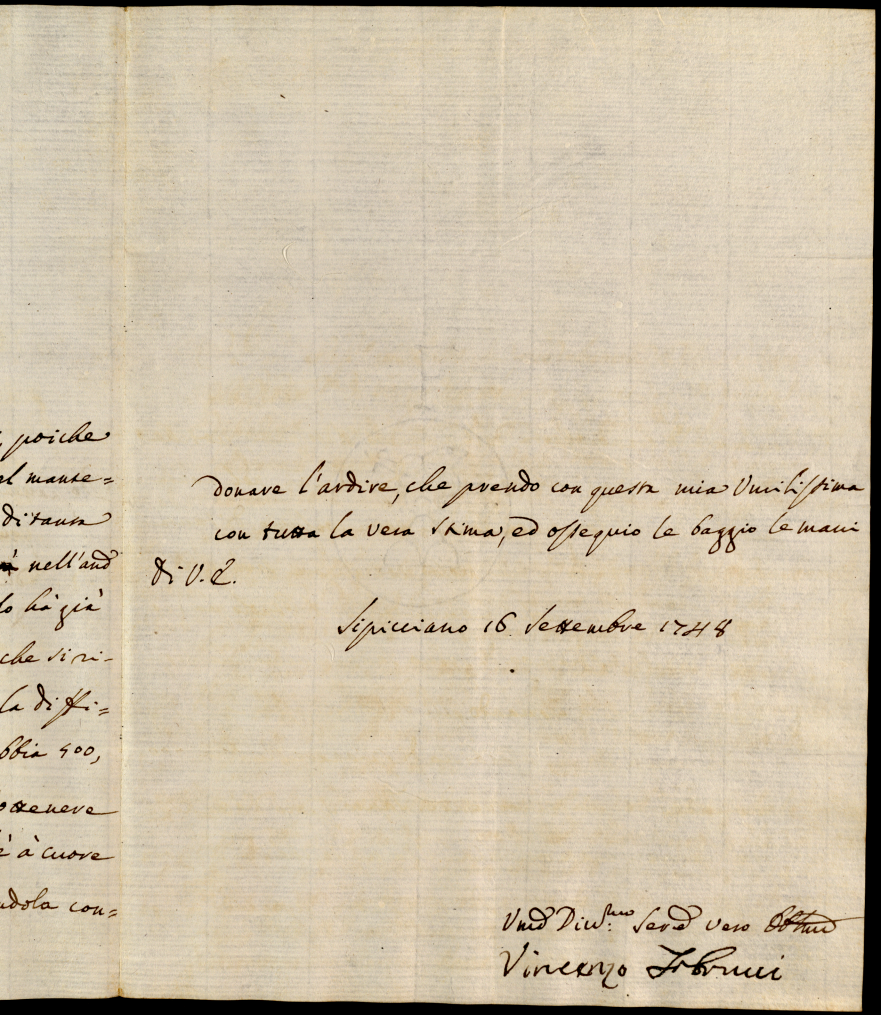 poiche
el mante=
di tanta
nell'and
lo hà già
che si ri-
la diffi=
bbia 400,
ottenere
è à cuore
ndola con=
donare l'ardire, che prendo con questa mia Umilissima
con tutta la vera stima, ed ossequio le baggio le mani
di V. E.
Sipicciano 16 Settembre 1748
Umo Divmo: Serve vero
Vincenzo